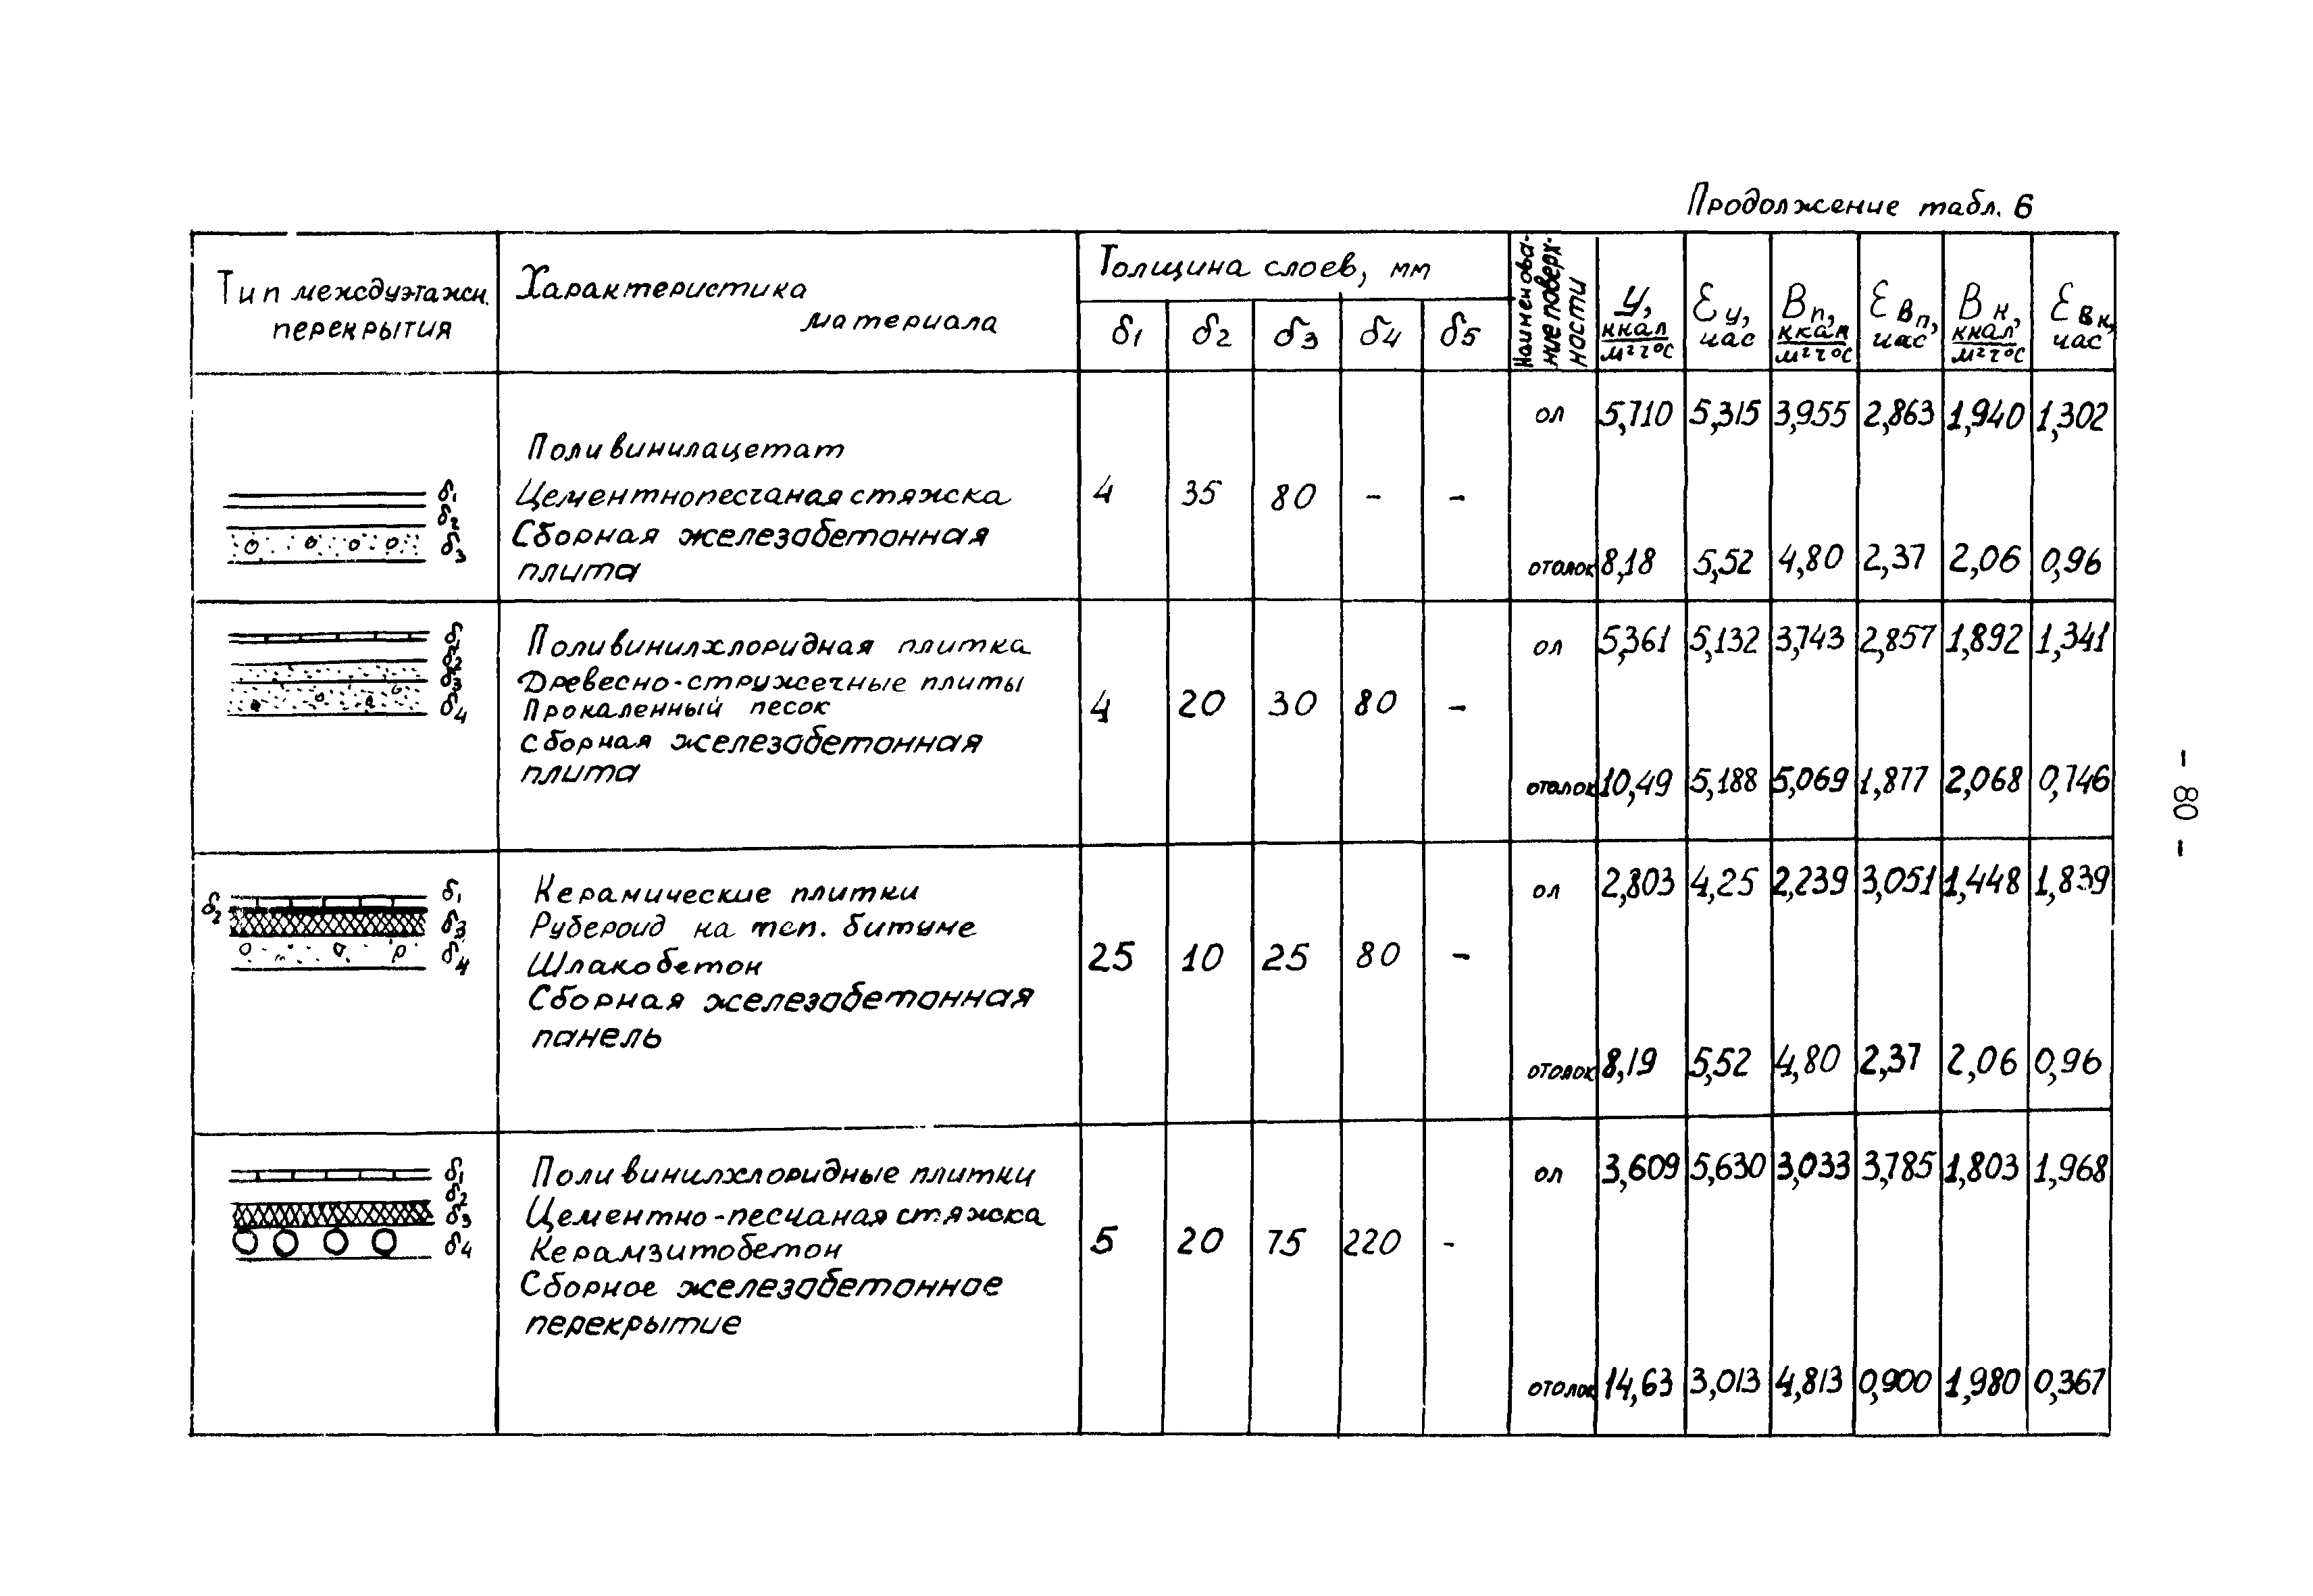 Продолжение табл. 6
Тип междуэтажн. перекрытия
Характеристика материала
Толщина слоев, мм
δ1 δ2 δ3 δ4 δ5
Наименова-
ние поверх-
ности
У, ккал/м²ч°С
Ɛу, час
Вп, ккал/м²ч°С
ƐВп, час
Вк, ккал/м²ч°С
ƐВк, час
δ1
δ2
δ3
Поливинилацетат
Цементнопесчаная стяжка
Сборная железабетонная
плита
4 35 80 - -
ол 5,710 5,315 3,955 2,863 1,940 1,302
отолок 8,18 5,52 4,80 2,37 2,06 0,96
δ1
δ2
δ3
δ4
Поливинилхлоридная плитка
Древесно-стружечные плиты
Прокаленный песок
сборная железабетонная
плита
4 20 30 80 -
ол 5,361 5,132 3,743 2,857 1,892 1,341
отолок 10,49 5,188 5,069 1,877 2,068 0,746
δ1
δ2
δ3
δ4
Керамические плитки
Рубероид на теп. битуме
Шлакобетон
Сборная железабетонная
панель
25 10 25 80 -
ол 2,803 4,25 2,239 3,051 1,448 1,839
отолок 8,19 5,52 4,80 2,37 2,06 0,96
δ1
δ2
δ3
δ4
Поливинилхлоридные плитки
Цементно-песчаная стяжка
Керамзитобетон
Сборное железабетонное
перекрытие
5 20 75 220 -
ол 3,609 5,630 3,033 3,785 1,803 1,968
отолок 14,63 3,013 4,813 0,900 1,980 0,367
- 80 -